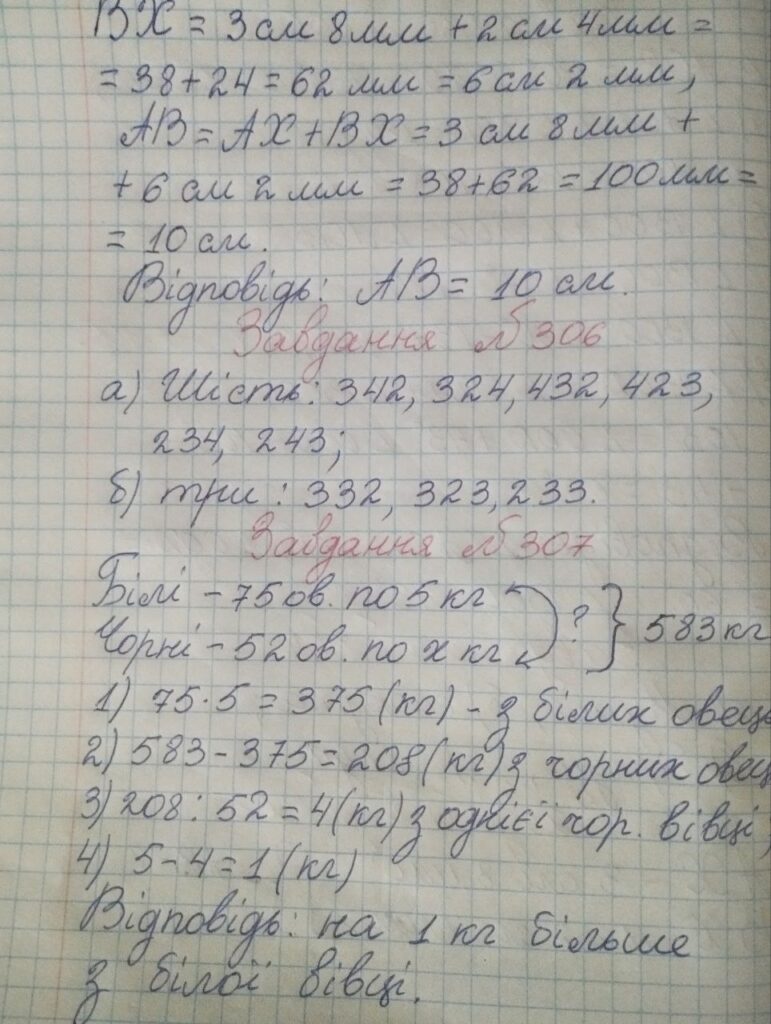 ВХ = 3 см 8 мм + 2 см 4 мм =
= 38 + 24 = 62 мм = 6 см 2 мм,
АВ = АХ + ВХ = 3 см 8 мм +
+ 6 см 2 мм = 38 + 62 = 100 мм =
= 10 см.
Відповідь: АВ = 10 см.
Завдання №306
а) Шість: 342, 324, 432, 423,
234, 243;
б) три: 332, 323, 233.
Завдання №307
Білі – 75 ов. по 5 кг
Чорні – 52 ов. по х кг ? } 583 кг
1) 75 · 5 = 375 (кг) – з білих овець
2) 583 – 375 = 208 (кг) з чорних овец
3) 208 : 52 = 4 (кг) з однієї чор. вівці;
4) 5 – 4 = 1 (кг)
Відповідь: на 1 кг більше
з білої вівці.